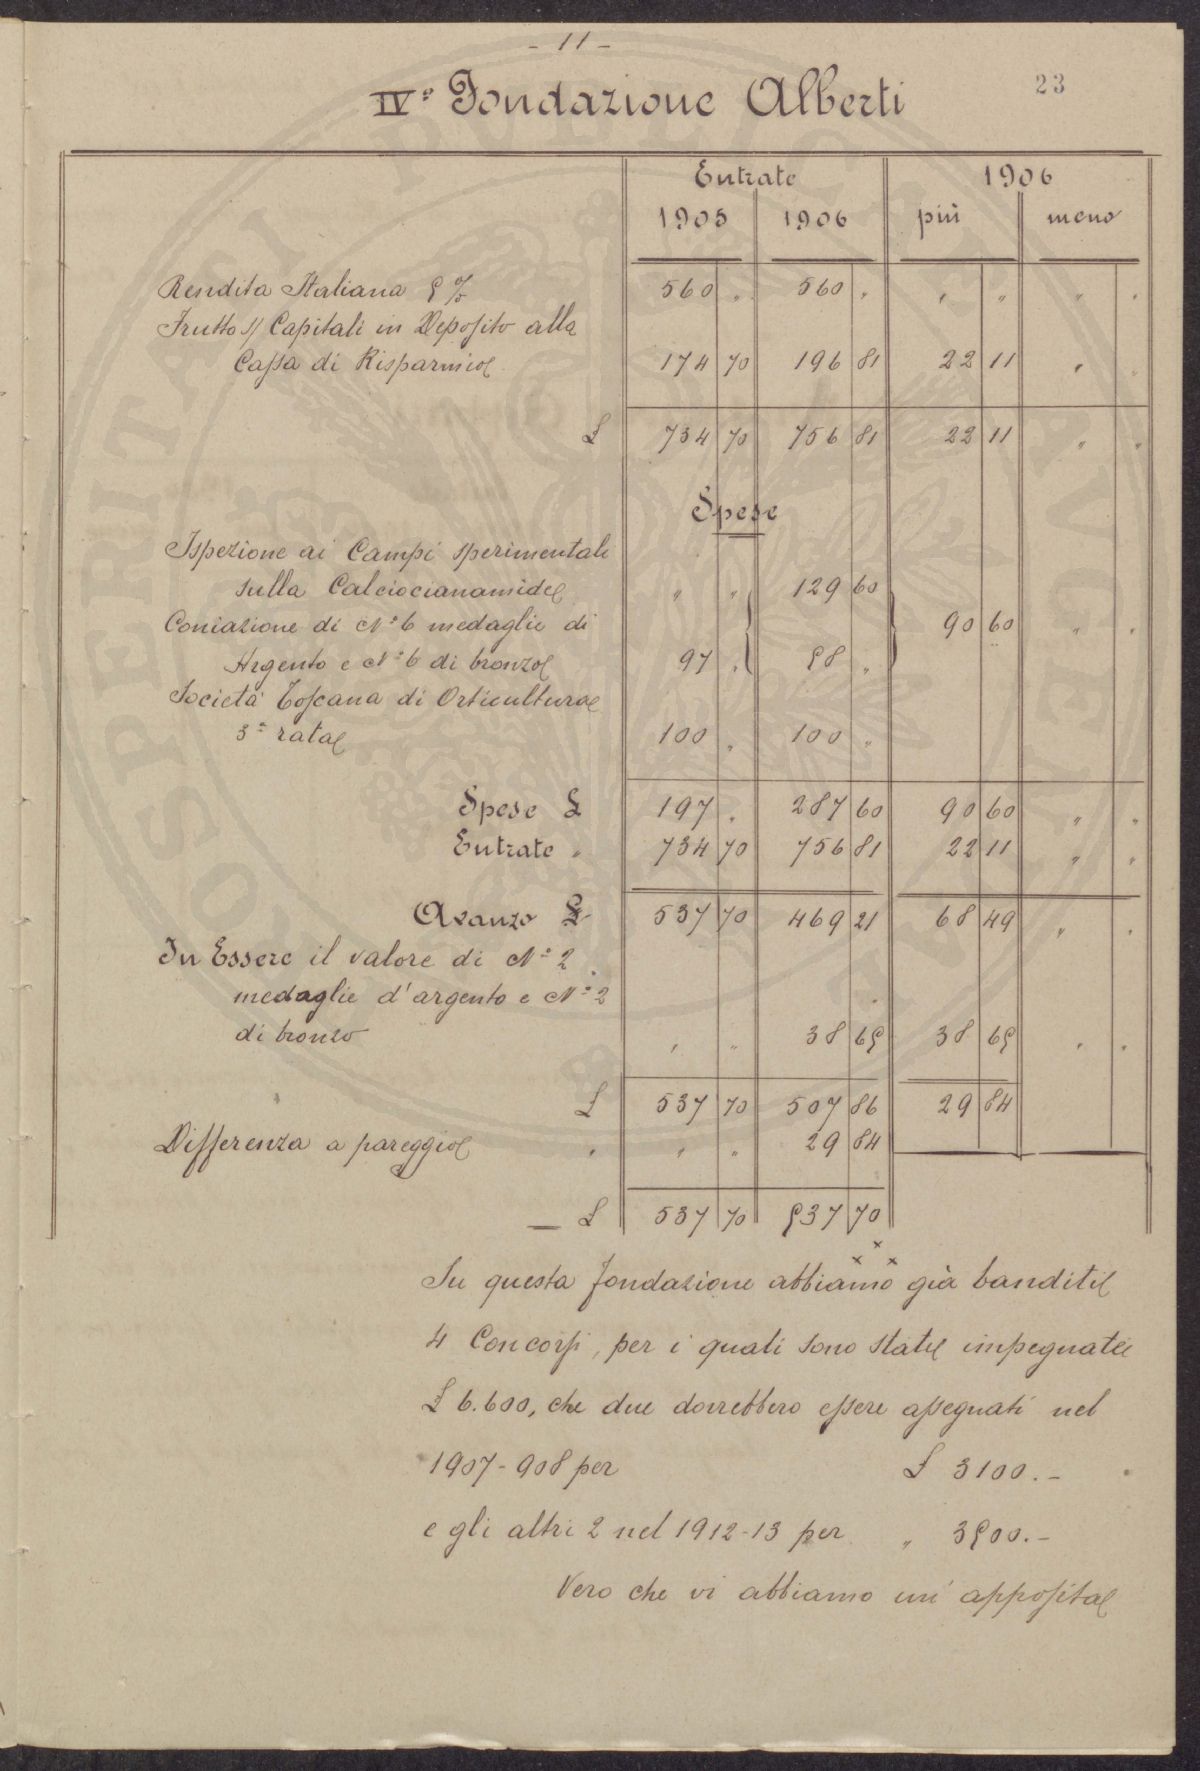 - 11 -
23
IV° Fondazione Alberti
Entrate 1906
1905 1906 più meno
Rendita Italiana 5 % 560 " 560 " " " " "
Frutto s/ Capitali in Deposito alla
Cassa di Risparmio 174 70 196 81 22 11 " "
£ 734 70 756 81 22 11 " "
Spese
Ispezione ai Campi sperimentali
sulla Calciocianamide " " 129 60
Coniazione di N° 6 medaglie di 90 60 " "
Argento e N° 6 di bronzo 97 " 58 "
Società Toscana di Orticultura
3ª rata 100 " 100 "
Spese £ 197 " 287 60 90 60 " "
Entrate " 734 70 756 81 22 11 " "
Avanzo £ 537 70 469 21 68 49 " "
In Essere il valore di N° 2
medaglie d'argento e N° 2
di bronzo " " 38 65 38 65 " "
£ 537 70 507 86 29 84
Differenza a pareggio " " " 29 84
— £ 537 70 537 70
Su questa fondazione abbiamo già banditi
4 Concorsi, per i quali sono state impegnate
£ 6.600, che due dovrebbero essere assegnati nel
1907-908 per £ 3100.-
e gli altri 2 nel 1912-13 per " 3500.-
Vero che vi abbiamo un' apposita